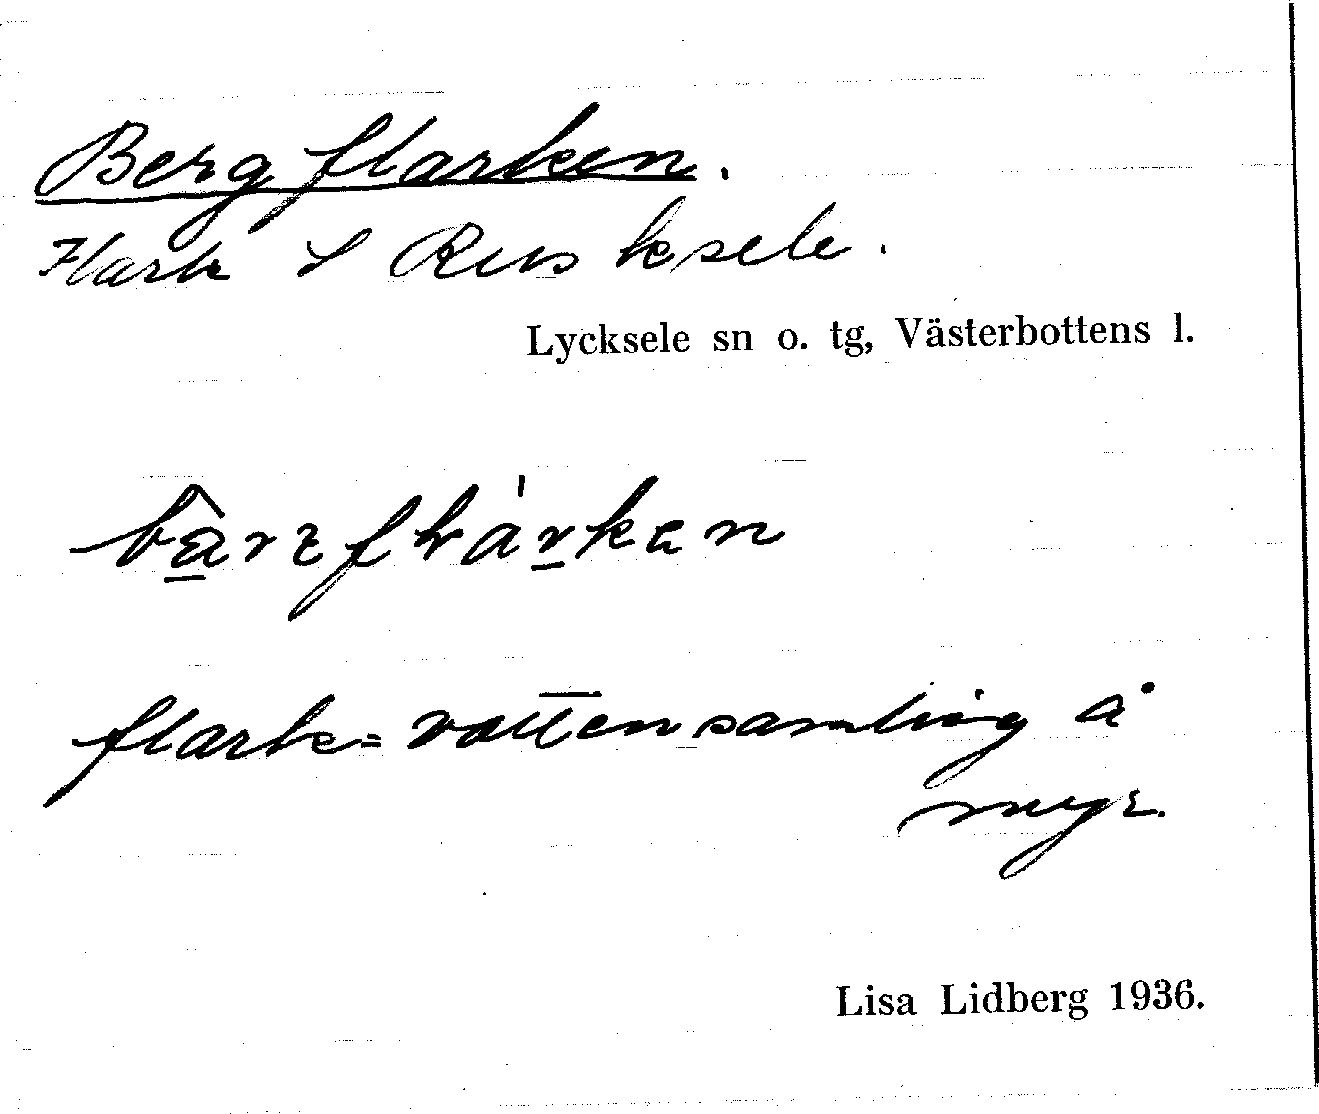 Bergflarken.
Flark S Rusksele.
Lycksele sn o. tg, Västerbottens l.
flark = vattensamling å
myr.
Lisa Lidberg 1936.